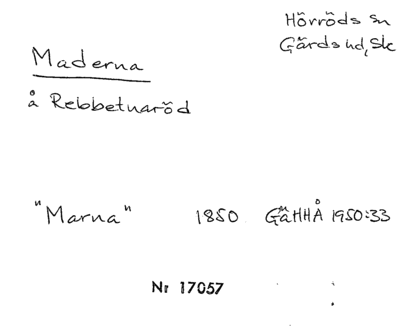 Hörröds sn
Gärds hd, Sk
Maderna
å Rebbetuaröd
"Marna" 1850 GäHHÅ 1950:33
Nr 17057